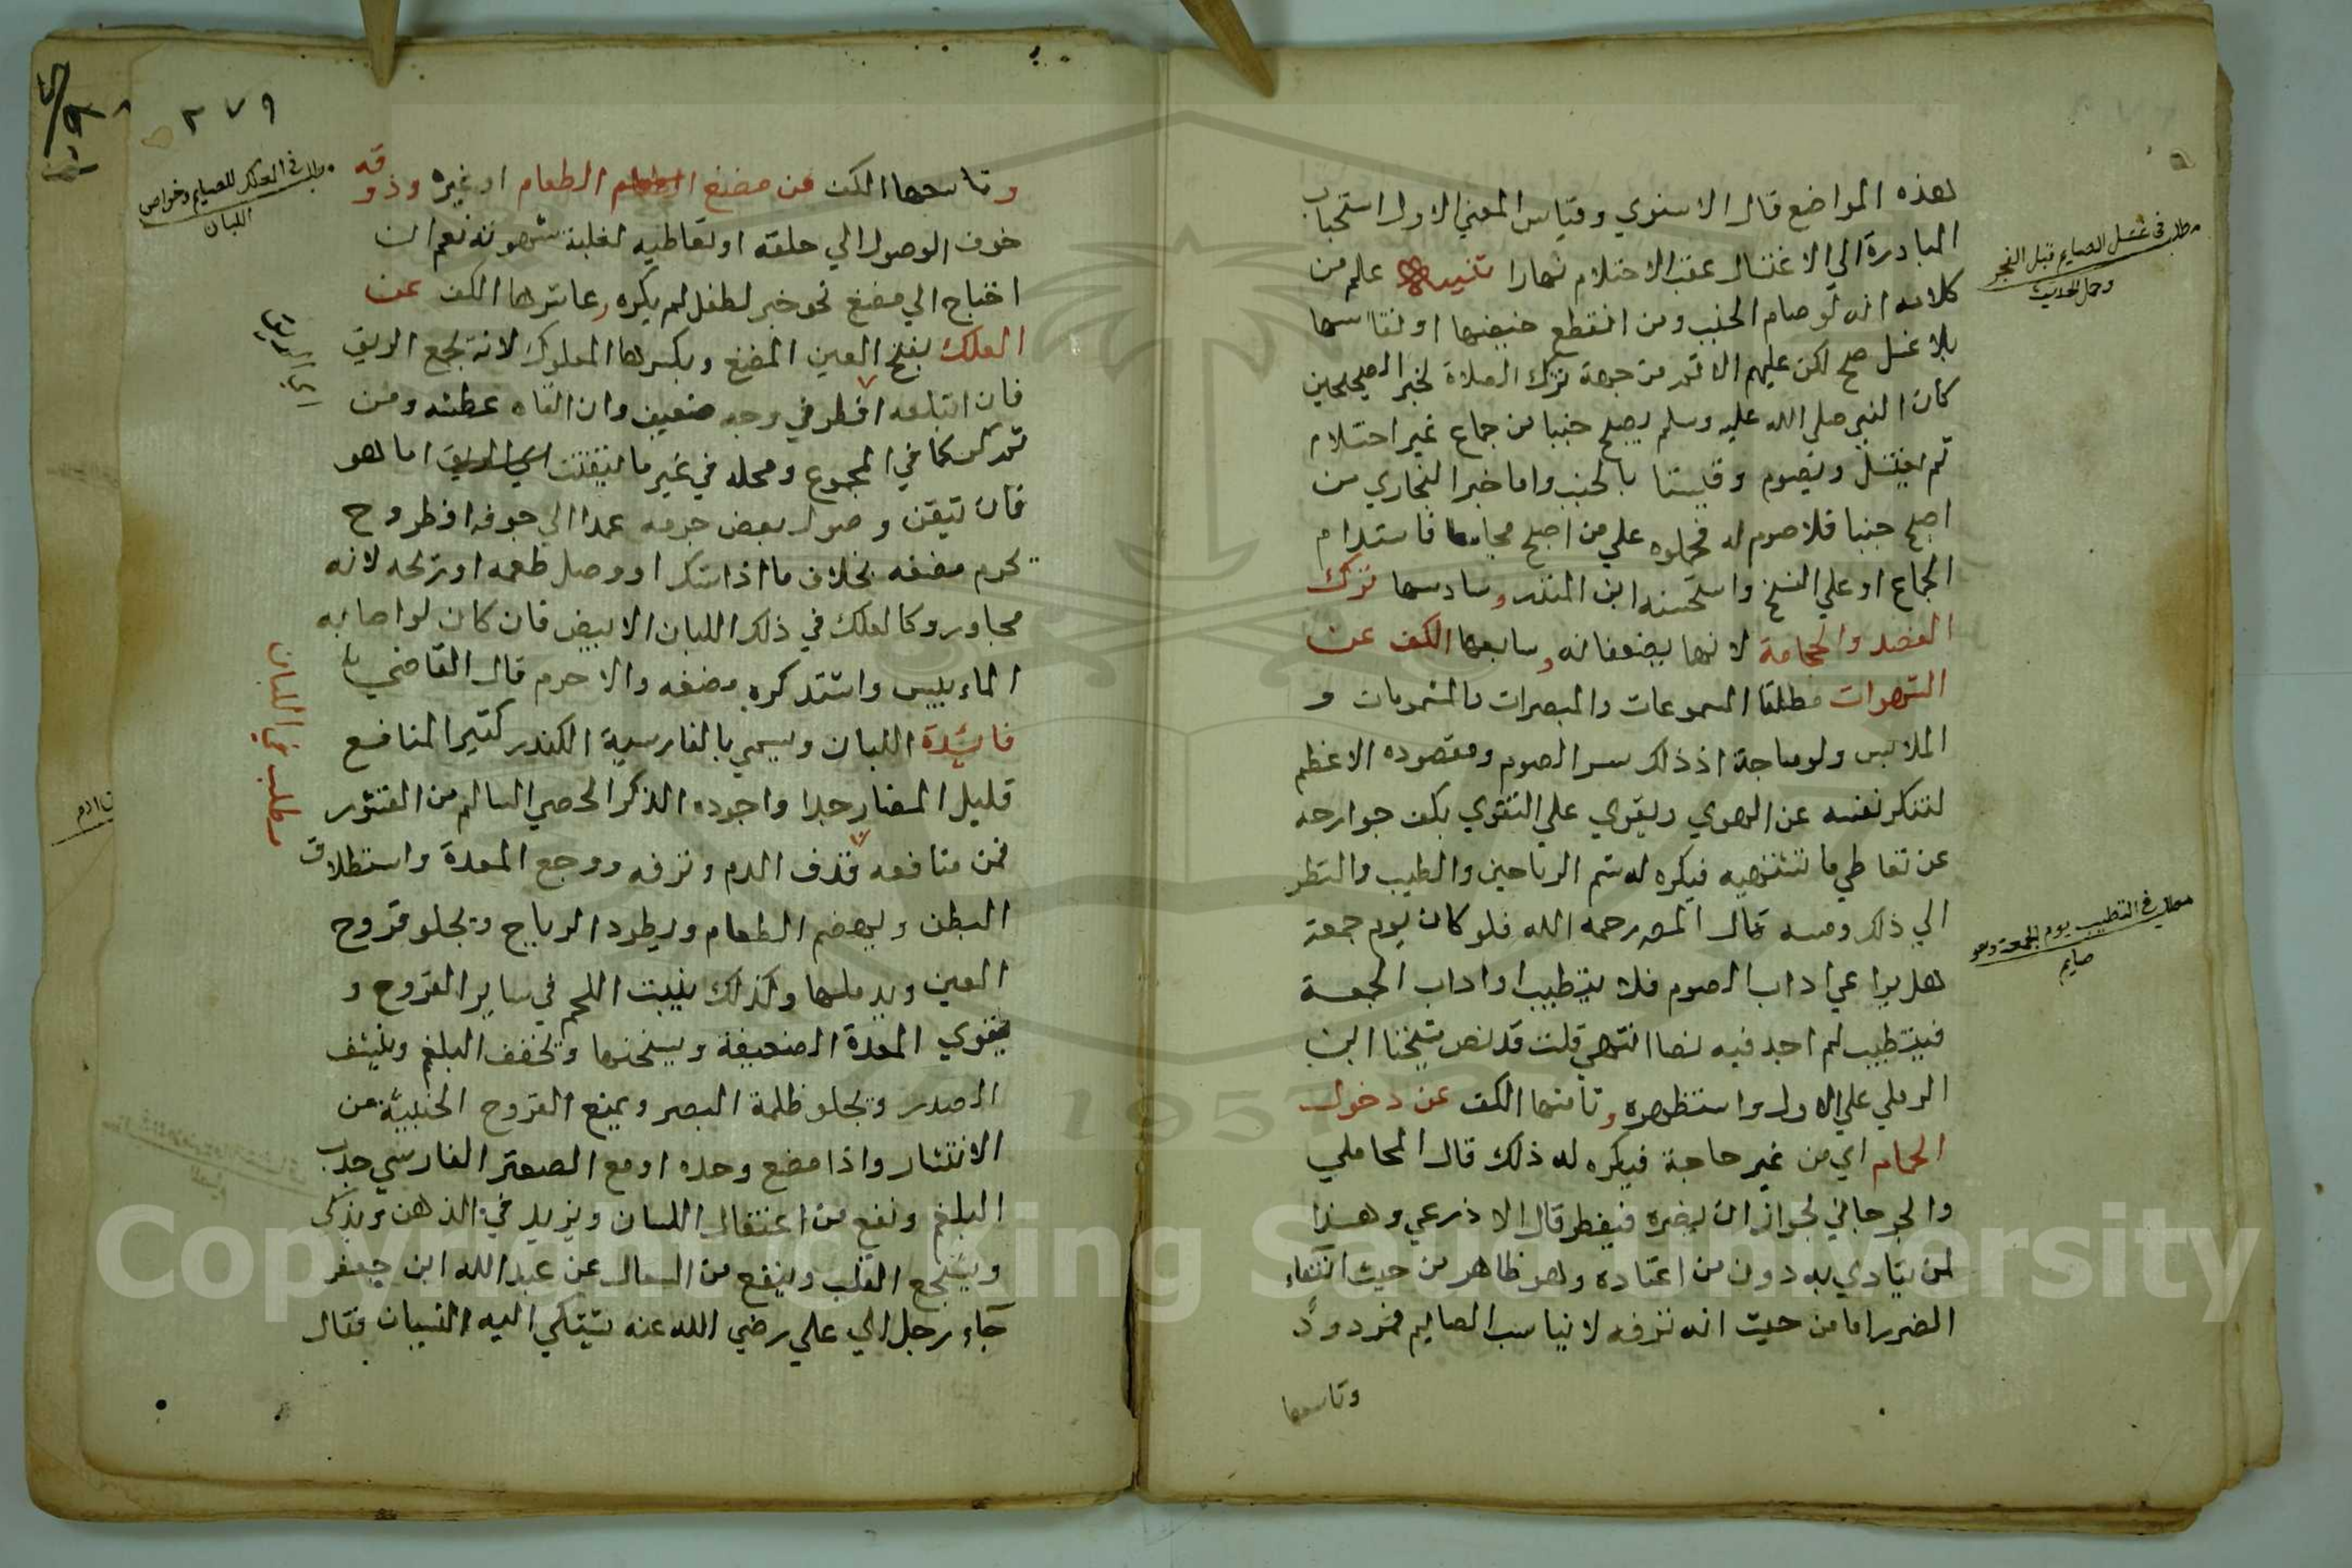 لهذه المواضع قال الاسنوي وقياس المعني الاول استحباب
المبادرة الي الاغتسال عقب الاحتلام نهارا تنبيه علم من
كلامه انه لو صام الجنب ومن انقطع حيضها او نفاسها
بلا غسل صح لكن عليهم الاثم من جهة ترك الصلاة لخبر الصحيحين
كان النبي صلي الله عليه وسلم يصبح جنبا من جماع غير احتلام
ثم يغتسل ويصوم وقيسنا بالجنب واما خبر البخاري من
اصبح جنبا فلا صوم له فحملوه علي من اصبح مجامعا فاستدام
الجماع او علي النسخ واستحسنه ابن المنذر وسادسها ترك
الفصد والحجامة لانهما يضعفانه وسابعها الكف عن
الشهوات مطلقا المسموعات والمبصرات والمشمومات و
الملابس ولو مباحة اذ ذلك سر الصوم ومقصوده الاعظم
لتنكسر نفسه عن الهوي ويقوي علي التقوي بكف جوارحه
عن تعاطي ما تشتهيه فيكره له شم الرياحين والطيب والنظر
الي ذلك ومسه قال المصـ رحمه الله فلو كان يوم جمعة
هل يراعي اداب الصوم فلا يتطيب او اداب الجمعة
فيتطيب لم اجد فيه نصا انتهي قلت قد نص شيخنا ابن
الرملي علي الاول واستظهره وثامنها الكف عن دخول
الحمام اي من غير حاجة فيكره له ذلك قال المحاملي
والجرجاني لجواز ان يضره فيفطر قال الاذرعي وهذا
لمن يتاذي به دون من اعتاده وهو ظاهر من حيث انتفاء
الضرر اما من حيث انه ترفه لا يناسب الصايم فمردود
وتاسعها
مطلب في غسل الصايم قبل الفجر
وحمل الحديث
مطلب في التطيب يوم الجمعة وهو
صايم
٢٧٩
وتاسعها الكف عن مضغ الطعام الطعام او غيره وذوقه
خوف الوصول الي حلقه او تعاطيه لغلبة شهوته نعم ان
احتاج الي مضغ نحو خبز لطفل لم يكره وعاشرها الكف عن
العلك بفتح العين المضغ وبكسرها المعلوك لانه يجمع الريق
فان ابتلعه افطر في وجه ضعيف وان القاه عطشه ومن
ثم كره كما في المجموع ومحله في غير ما يتفتت اي الريق اما هو
فان تيقن وصول بعض جرمه عمدا الي جوفه افطر وح
يحرم مضغه بخلاف ما اذا شك او وصل طعمه او ريحه لانه
مجاور وكالعلك في ذلك اللبان الابيض فان كان لو اصابه
الماء يبس واشتد كره مضغه والا حرم قال القاضي
فائدة اللبان ويسمي بالفارسية الكندر كثير المنافع
قليل المضار جدا واجوده الذكر الحصي السالم من القشور
فمن منافعه قذف الدم ونزفه ووجع المعدة واستطلاق
البطن ويهضم الطعام ويطرد الرياح ويجلو قروح
العين ويدملها وكذلك ينبت اللحم في ساير القروح و
يقوي المعدة الضعيفة ويسخنها ويجفف البلغم وينشف
الصدر ويجلو ظلمة البصر ويمنع القروح الخبيثة من
الانتشار واذا مضغ وحده او مع الصعتر الفارسي جلب
البلغم ونفع من اعتقال اللسان ويزيد في الذهن ويذكي
ويشجع القلب وينفع من السعال عن عبد الله ابن جعفر
جاء رجل الي علي رضي الله عنه يشتكي اليه النسيان فقال
مطلب في العلك للصايم وخواص
اللبان
اي الريق
مطلب في اللبان
Copyright © King Saud University
1957